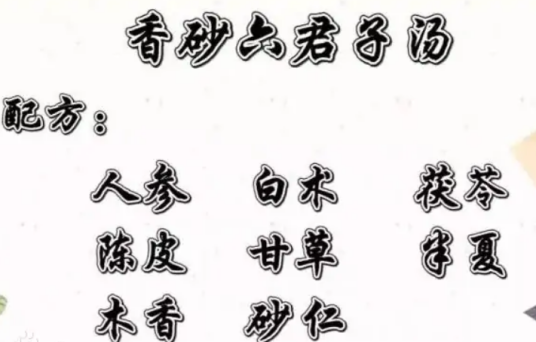 香砂六君子汤
配方：
人参 白术 茯苓
陈皮 甘草 半夏
木香 砂仁